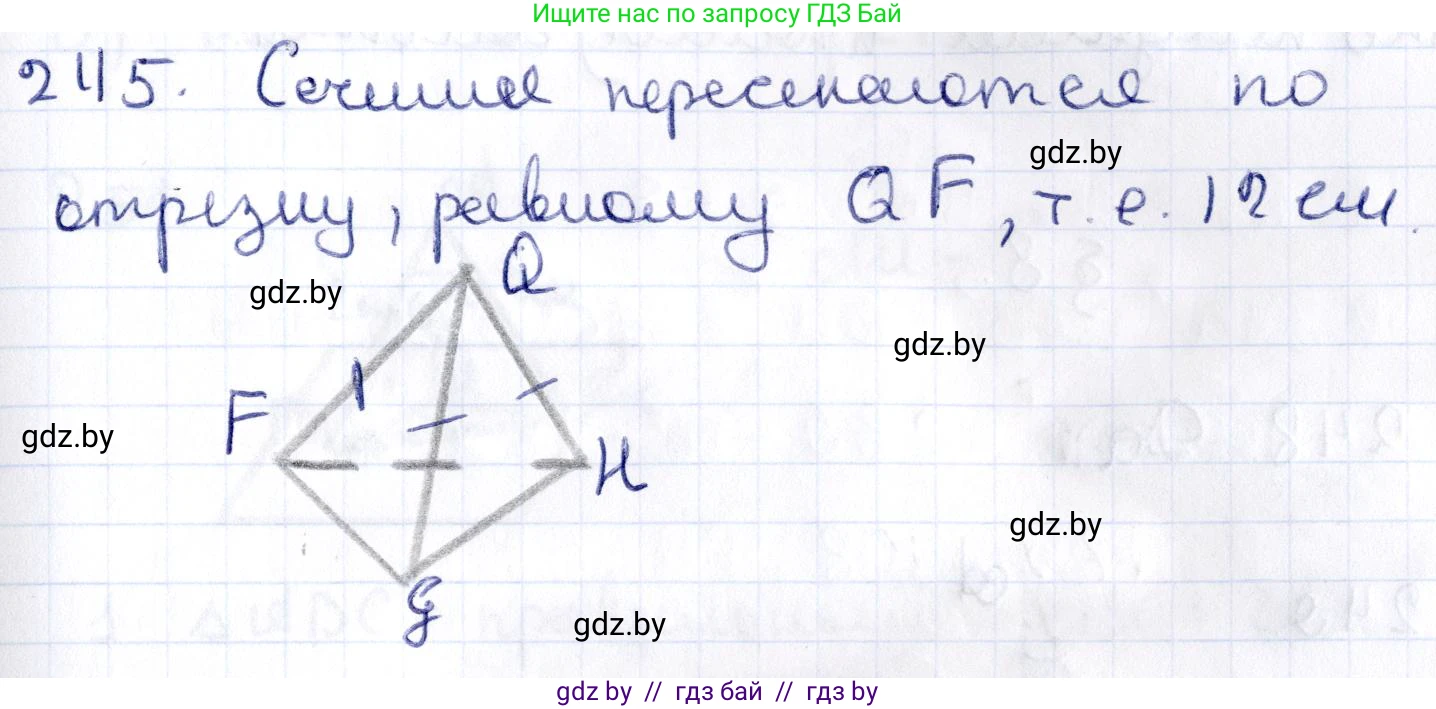 Ищите нас по запросу ГДЗ Бай
245. Сечения пересекаются по
gdz.by
отрезку, равному QF, т.е. 12 см.
Q
gdz.by
gdz.by
F
gdz.by
H
gdz.by
G
gdz.by
gdz by // гдз бай // гдз by